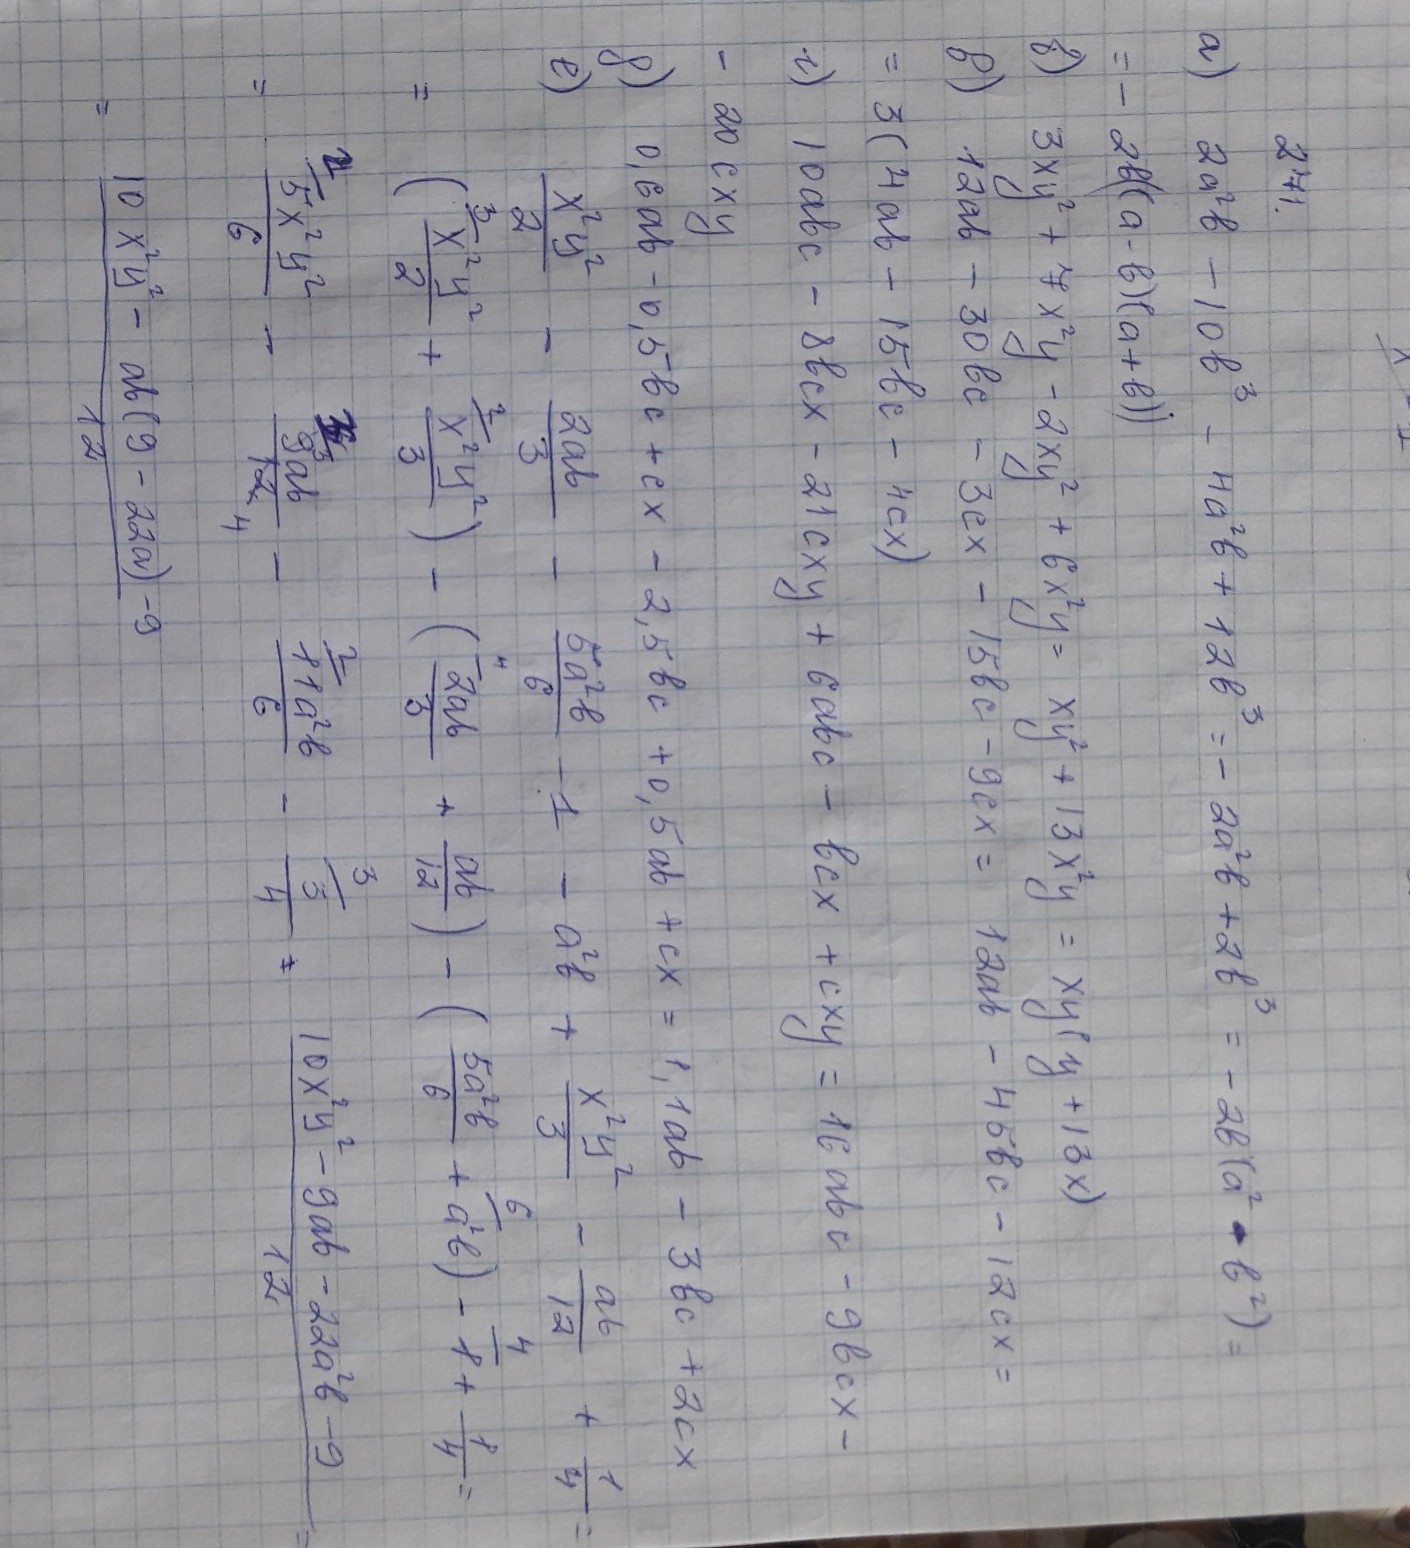 271.
а) 2a²b - 10b³ - 4a²b + 12b³ = - 2a²b + 2b³ = - 2b(a² - b²) =
= - 2b(a - b)(a + b)
б) 3xy² + 7x²y - 2xy² + 6x²y = xy² + 13x²y = xy(y + 13x)
в) 12ab - 30bc - 3cx - 15bc - 9cx = 12ab - 45bc - 12cx =
= 3(4ab - 15bc - 4cx)
г) 10abc - 8bcx - 21cxy + 6abc - bcx + cxy = 16abc - 9bcx -
- 20cxy
д) 0,6ab - 0,5bc + cx - 2,5bc + 0,5ab + cx = 1,1ab - 3bc + 2cx
е) x²y²/2 - 2ab/3 - 5a²b/6 - 1 - a²b + x²y²/3 - ab/12 + 1/4 =
= (x²y²/2 + x²y²/3) - (2ab/3 + ab/12) - (5a²b/6 + a²b) - 1 + 1/4 =
= 5x²y²/6 - 9ab/12 - 11a²b/6 - 3/4 = (10x²y² - 9ab - 22a²b - 9)/12 =
= (10x²y² - ab(9 - 22a) - 9)/12